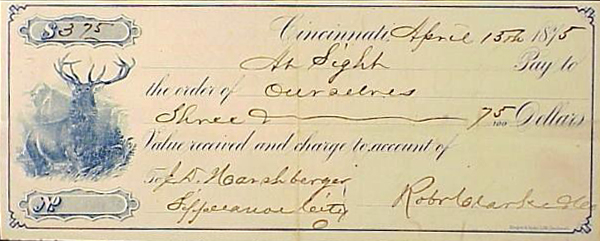 $3 75
Cincinnati, April 15th 1875
At Sight Pay to
the order of Ourselves
Three & 75/100 Dollars
Value received and charge to account of
To J. D. Harshberger
Tippecanoe City
Robt Clarke & Co